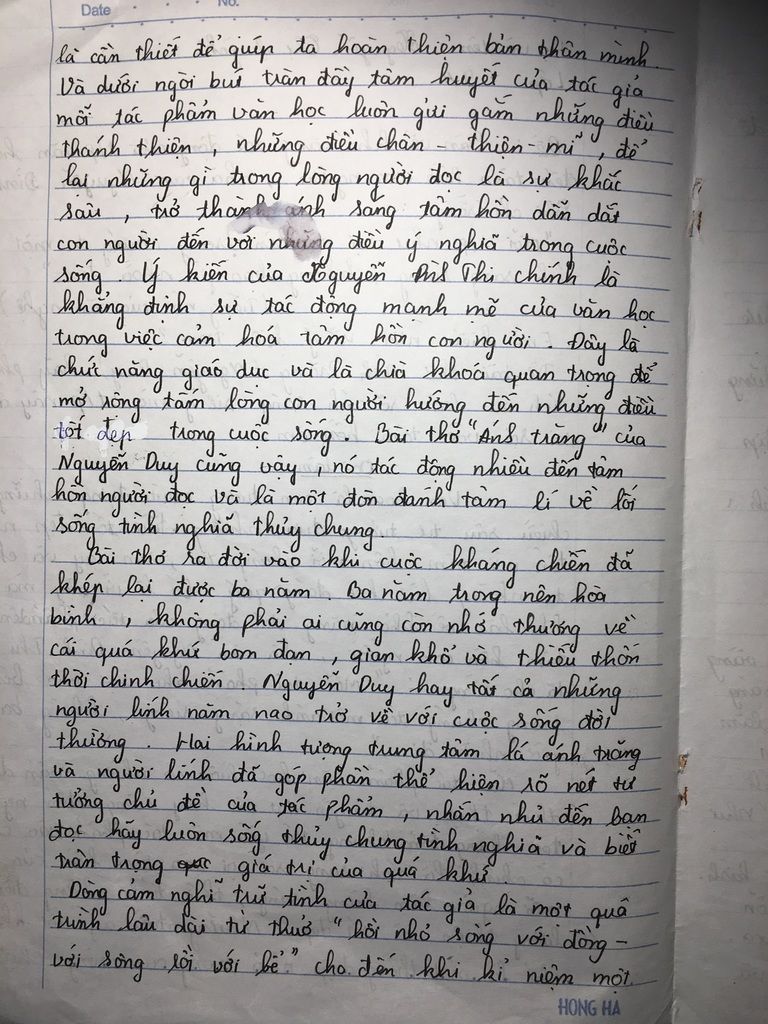 Date No.
là cần thiết để giúp ta hoàn thiện bản thân mình.
Và dưới ngòi bút tràn đầy tâm huyết của tác giả
mỗi tác phẩm văn học luôn gửi gắm những điều
thánh thiện, những điều chân - thiện - mĩ, để
lại những gì trong lòng người đọc là sự khắc
sâu, trở thành ánh sáng tâm hồn dẫn dắt
con người đến với những điều ý nghĩa trong cuộc
sống. Ý kiến của Nguyễn Đình Thi chính là
khẳng định sự tác động mạnh mẽ của văn học
trong việc cảm hoá tâm hồn con người. Đây là
chức năng giáo dục và là chìa khoá quan trọng để
mở rộng tấm lòng con người hướng đến những điều
tốt đẹp trong cuộc sống. Bài thơ "Ánh trăng" của
Nguyễn Duy cũng vậy, nó tác động nhiều đến tâm
hồn người đọc và là một đòn đánh tâm lí về lối
sống tình nghĩa thủy chung.
Bài thơ ra đời vào khi cuộc kháng chiến đã
khép lại được ba năm. Ba năm trong nền hòa
bình, không phải ai cũng còn nhớ thương về
cái quá khứ bom đạn, gian khổ và thiếu thốn
thời chinh chiến. Nguyễn Duy hay tất cả những
người lính năm nao trở về với cuộc sống đời
thường. Hai hình tượng trung tâm là ánh trăng
và người lính đã góp phần thể hiện rõ nét tư
tưởng chủ đề của tác phẩm, nhắn nhủ đến bạn
đọc hãy luôn sống thủy chung tình nghĩa và biết
trân trọng giá trị của quá khứ
Dòng cảm nghĩ trữ tình của tác giả là một quá
trình lâu dài từ thuở "hồi nhỏ sống với đồng -
với sông rồi với bể" cho đến khi kỉ niệm một
HONG HA